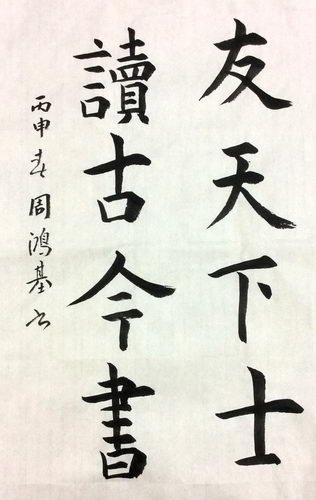 友天下士
讀古今書
丙申春周鴻基书